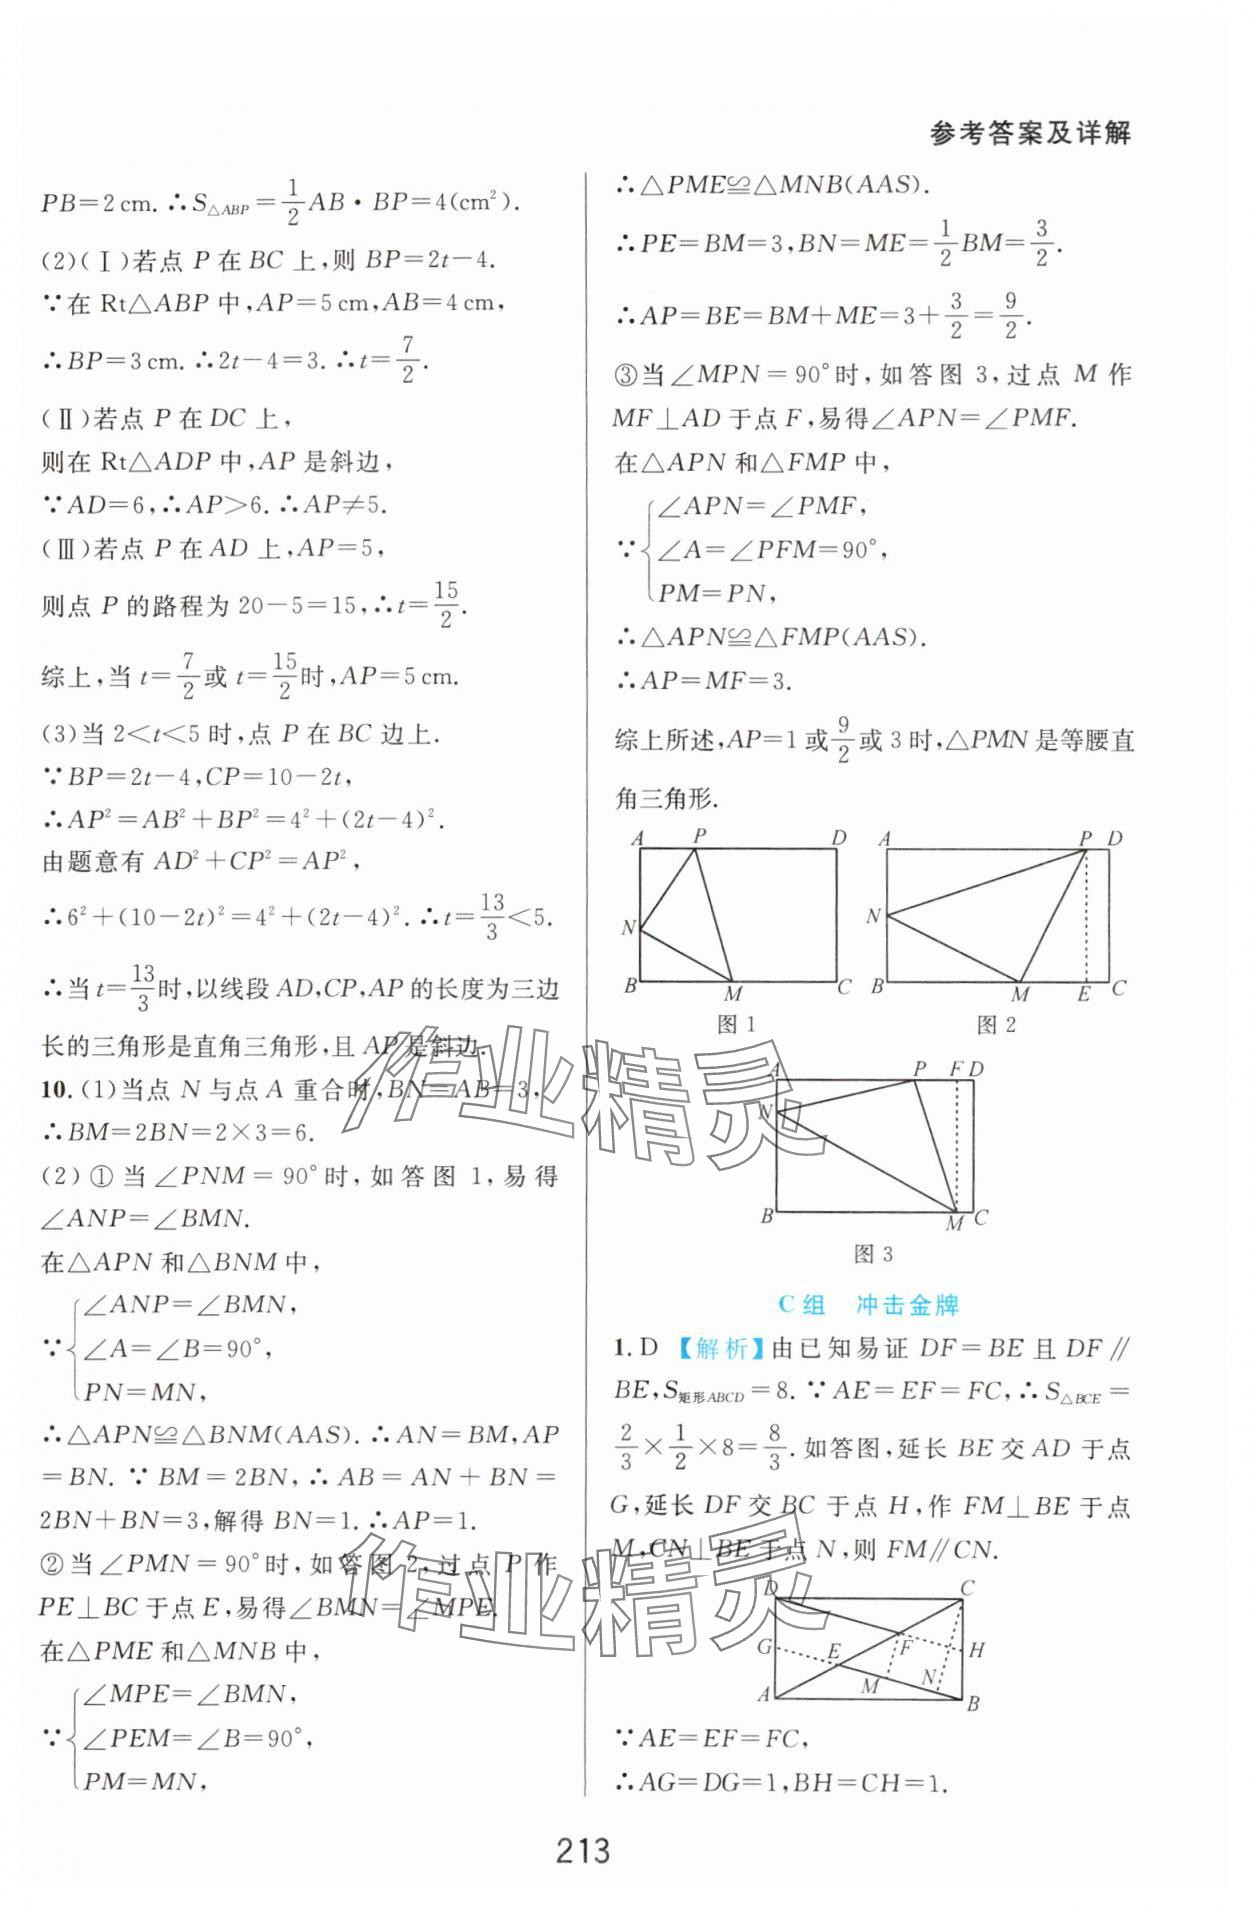 参考答案及详解
PB=2 cm. ∴S△ABP=1/2 AB·BP=4(cm²).
(2)(Ⅰ)若点 P 在 BC 上,则 BP=2t−4.
∵在 Rt△ABP 中,AP=5 cm,AB=4 cm,
∴BP=3 cm. ∴2t−4=3. ∴t=7/2.
(Ⅱ)若点 P 在 DC 上,
则在 Rt△ADP 中,AP 是斜边,
∵AD=6,∴AP>6. ∴AP≠5.
(Ⅲ)若点 P 在 AD 上,AP=5,
则点 P 的路程为 20−5=15,∴t=15/2.
综上,当 t=7/2 或 t=15/2 时,AP=5 cm.
(3)当 2<t<5 时,点 P 在 BC 边上.
∵BP=2t−4,CP=10−2t,
∴AP²=AB²+BP²=4²+(2t−4)².
由题意有 AD²+CP²=AP²,
∴6²+(10−2t)²=4²+(2t−4)². ∴t=13/3<5.
∴当 t=13/3 时,以线段 AD,CP,AP 的长度为三边
长的三角形是直角三角形,且 AP 是斜边.
10.(1)当点 N 与点 A 重合时,BN=AB=3,
∴BM=2BN=2×3=6.
(2)①当∠PNM=90°时,如答图 1,易得
∠ANP=∠BMN.
在△APN 和△BNM 中,
∠ANP=∠BMN,
∵{∠A=∠B=90°,
PN=MN,
∴△APN≌△BNM(AAS). ∴AN=BM,AP
=BN. ∵BM=2BN,∴AB=AN+BN=
2BN+BN=3,解得 BN=1. ∴AP=1.
②当∠PMN=90°时,如答图 2,过点 P 作
PE⊥BC 于点 E,易得∠BMN=∠MPE.
在△PME 和△MNB 中,
∠MPE=∠BMN,
∵{∠PEM=∠B=90°,
PM=MN,
∴△PME≌△MNB(AAS).
∴PE=BM=3,BN=ME=1/2 BM=3/2.
∴AP=BE=BM+ME=3+3/2=9/2.
③当∠MPN=90°时,如答图 3,过点 M 作
MF⊥AD 于点 F,易得∠APN=∠PMF.
在△APN 和△FMP 中,
∠APN=∠PMF,
∵{∠A=∠PFM=90°,
PM=PN,
∴△APN≌△FMP(AAS).
∴AP=MF=3.
综上所述,AP=1 或 9/2 或 3 时,△PMN 是等腰直
角三角形.
A P D
N
B M C
图 1
A P D
N
B M E C
图 2
A P F D
N
B M C
图 3
C 组 冲击金牌
1. D 【解析】由已知易证 DF=BE 且 DF∥
BE,S矩形ABCD=8. ∵AE=EF=FC,∴S△BCE=
2/3×1/2×8=8/3. 如答图,延长 BE 交 AD 于点
G,延长 DF 交 BC 于点 H,作 FM⊥BE 于点
M,CN⊥BE 于点 N,则 FM∥CN.
D C
G E F H
M N
A B
∵AE=EF=FC,
∴AG=DG=1,BH=CH=1.
213
作业精灵
作业精灵